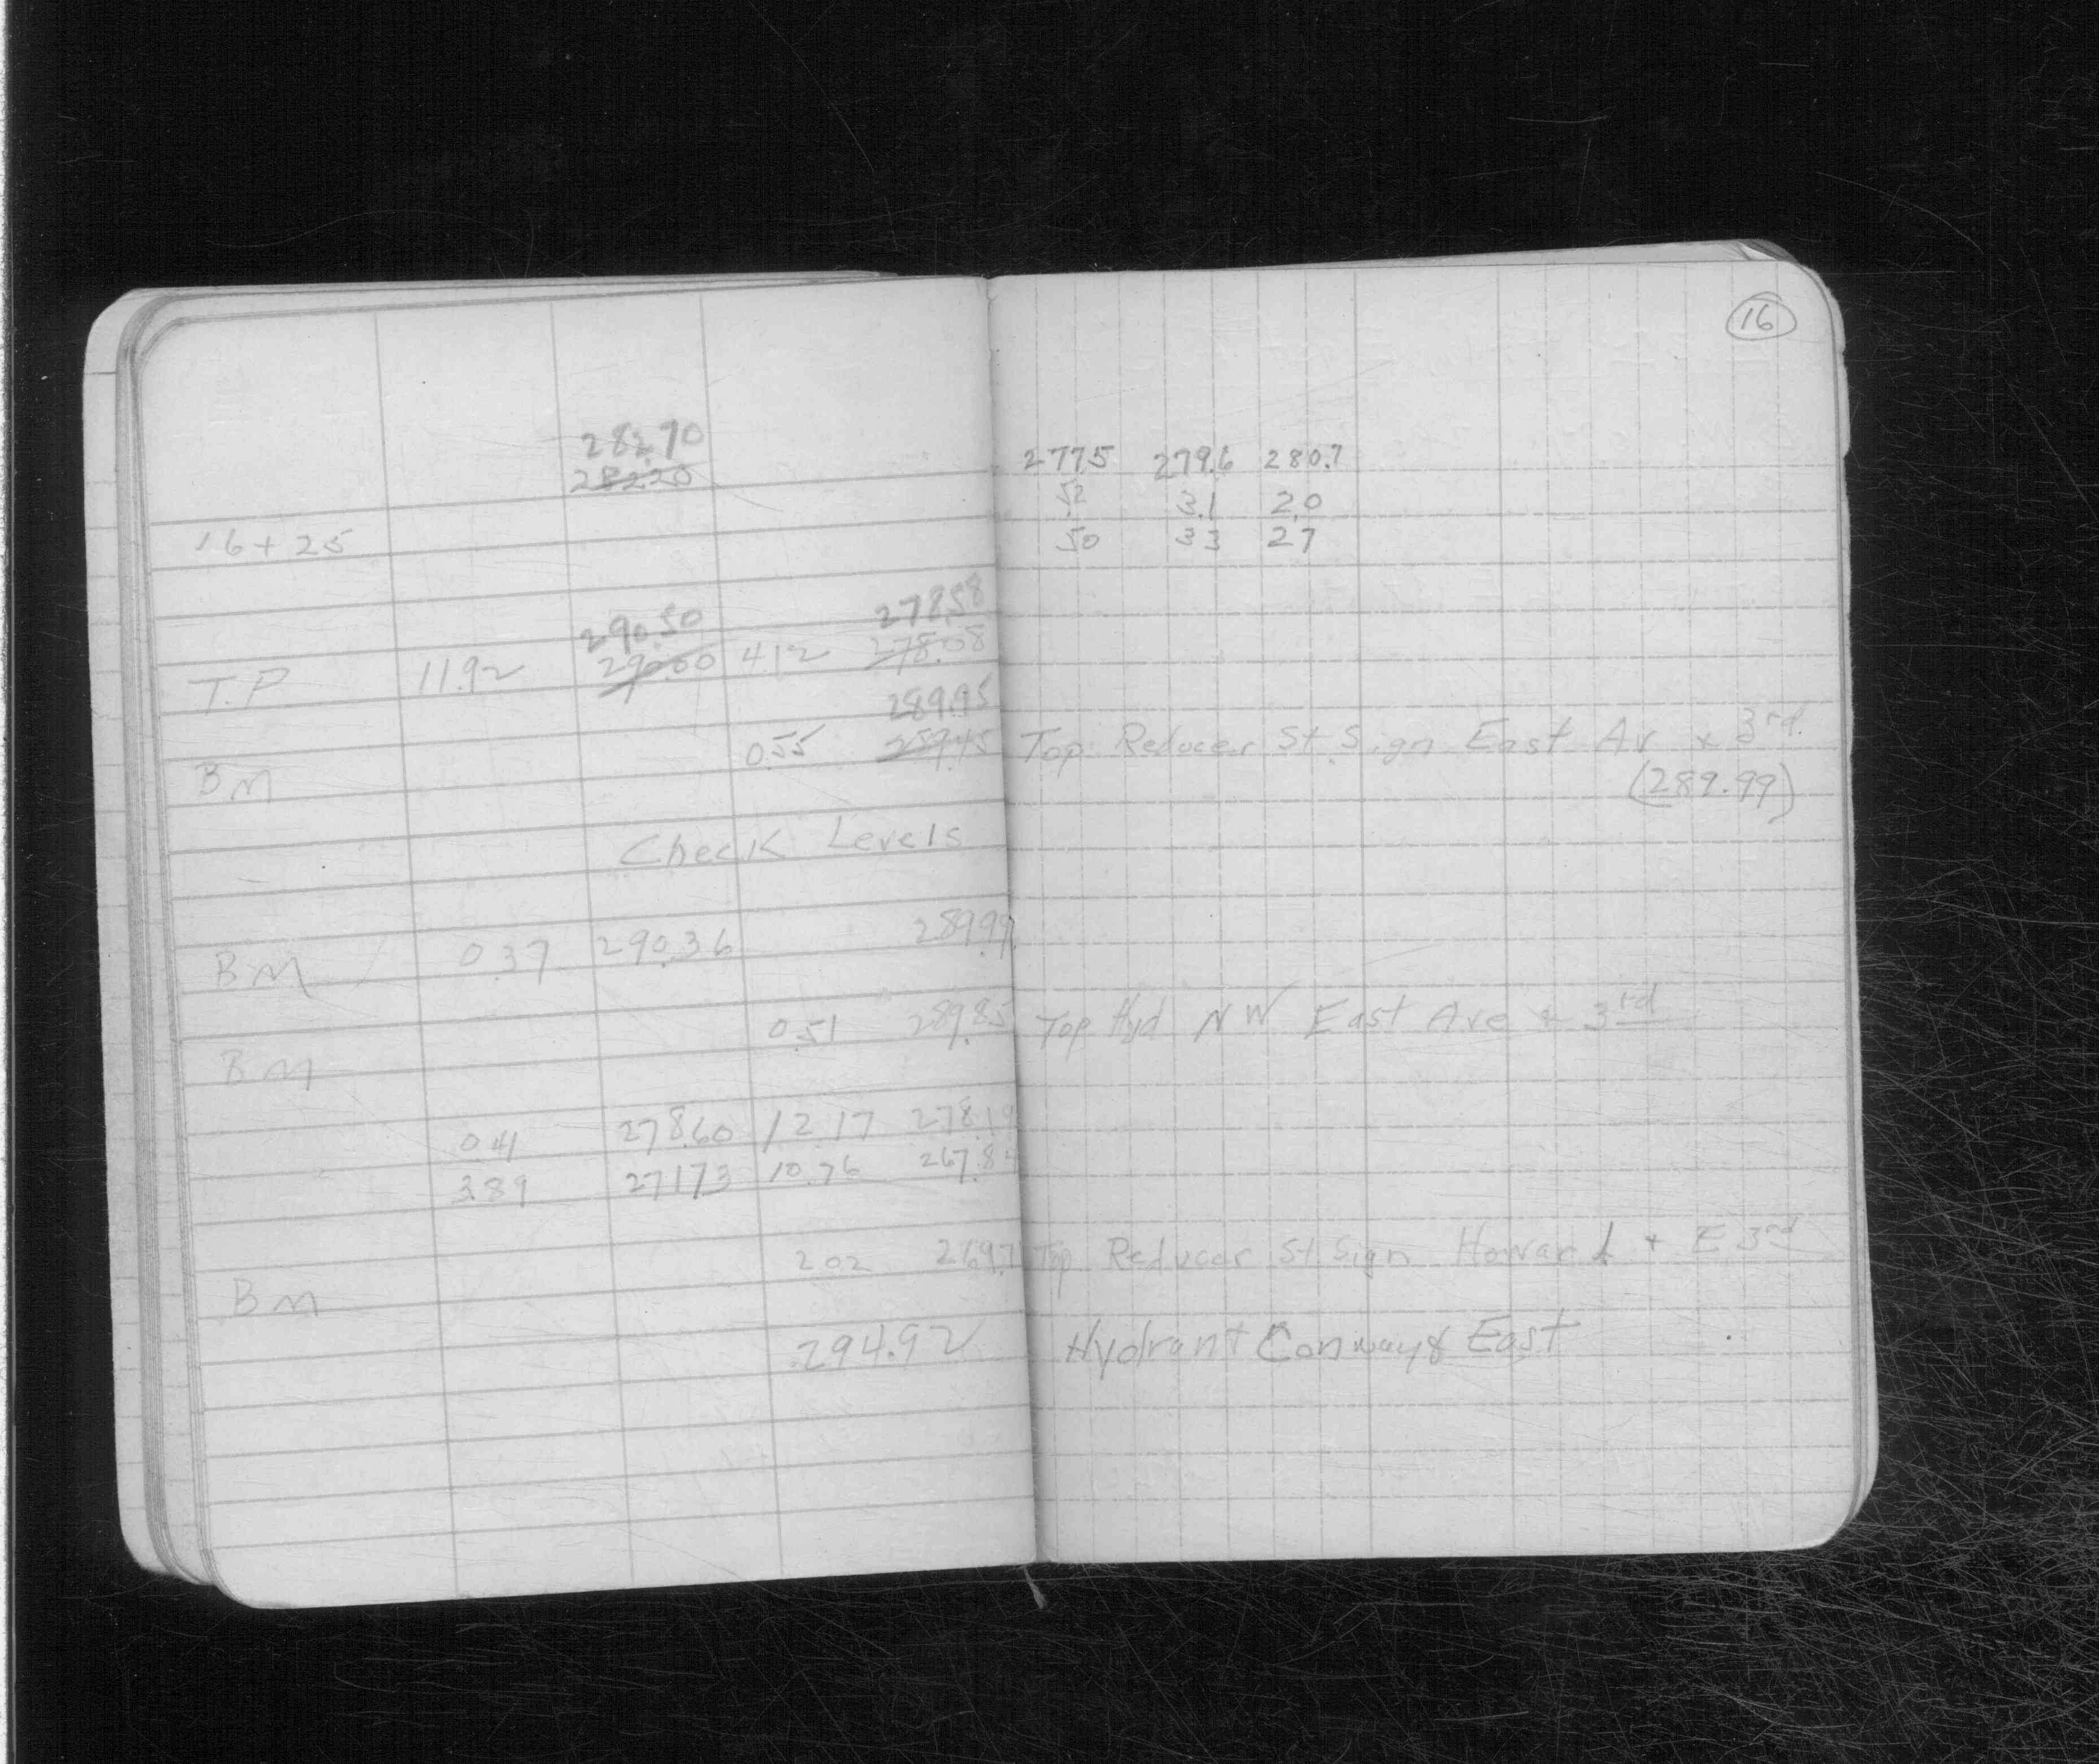 16
282.70
282.20
277.5 279.6 280.7
5.2 3.1 2.0
16+25 5.0 3.3 2.7
290.50 278.58
T.P 11.92 290.00 4.12 278.08
289.95
BM 0.55 289.45 Top Reducer St. Sign East Av & 3rd.
(289.99)
Check Levels
BM 0.37 290.36 289.99
BM 0.51 289.85 Top Hyd NW East Ave & 3rd
0.41 278.60 12.17 278.19
3.89 271.73 10.76 267.84
BM 2.02 269.71 Top Reducer St Sign Howard + E 3rd
294.92 Hydrant Conway & East